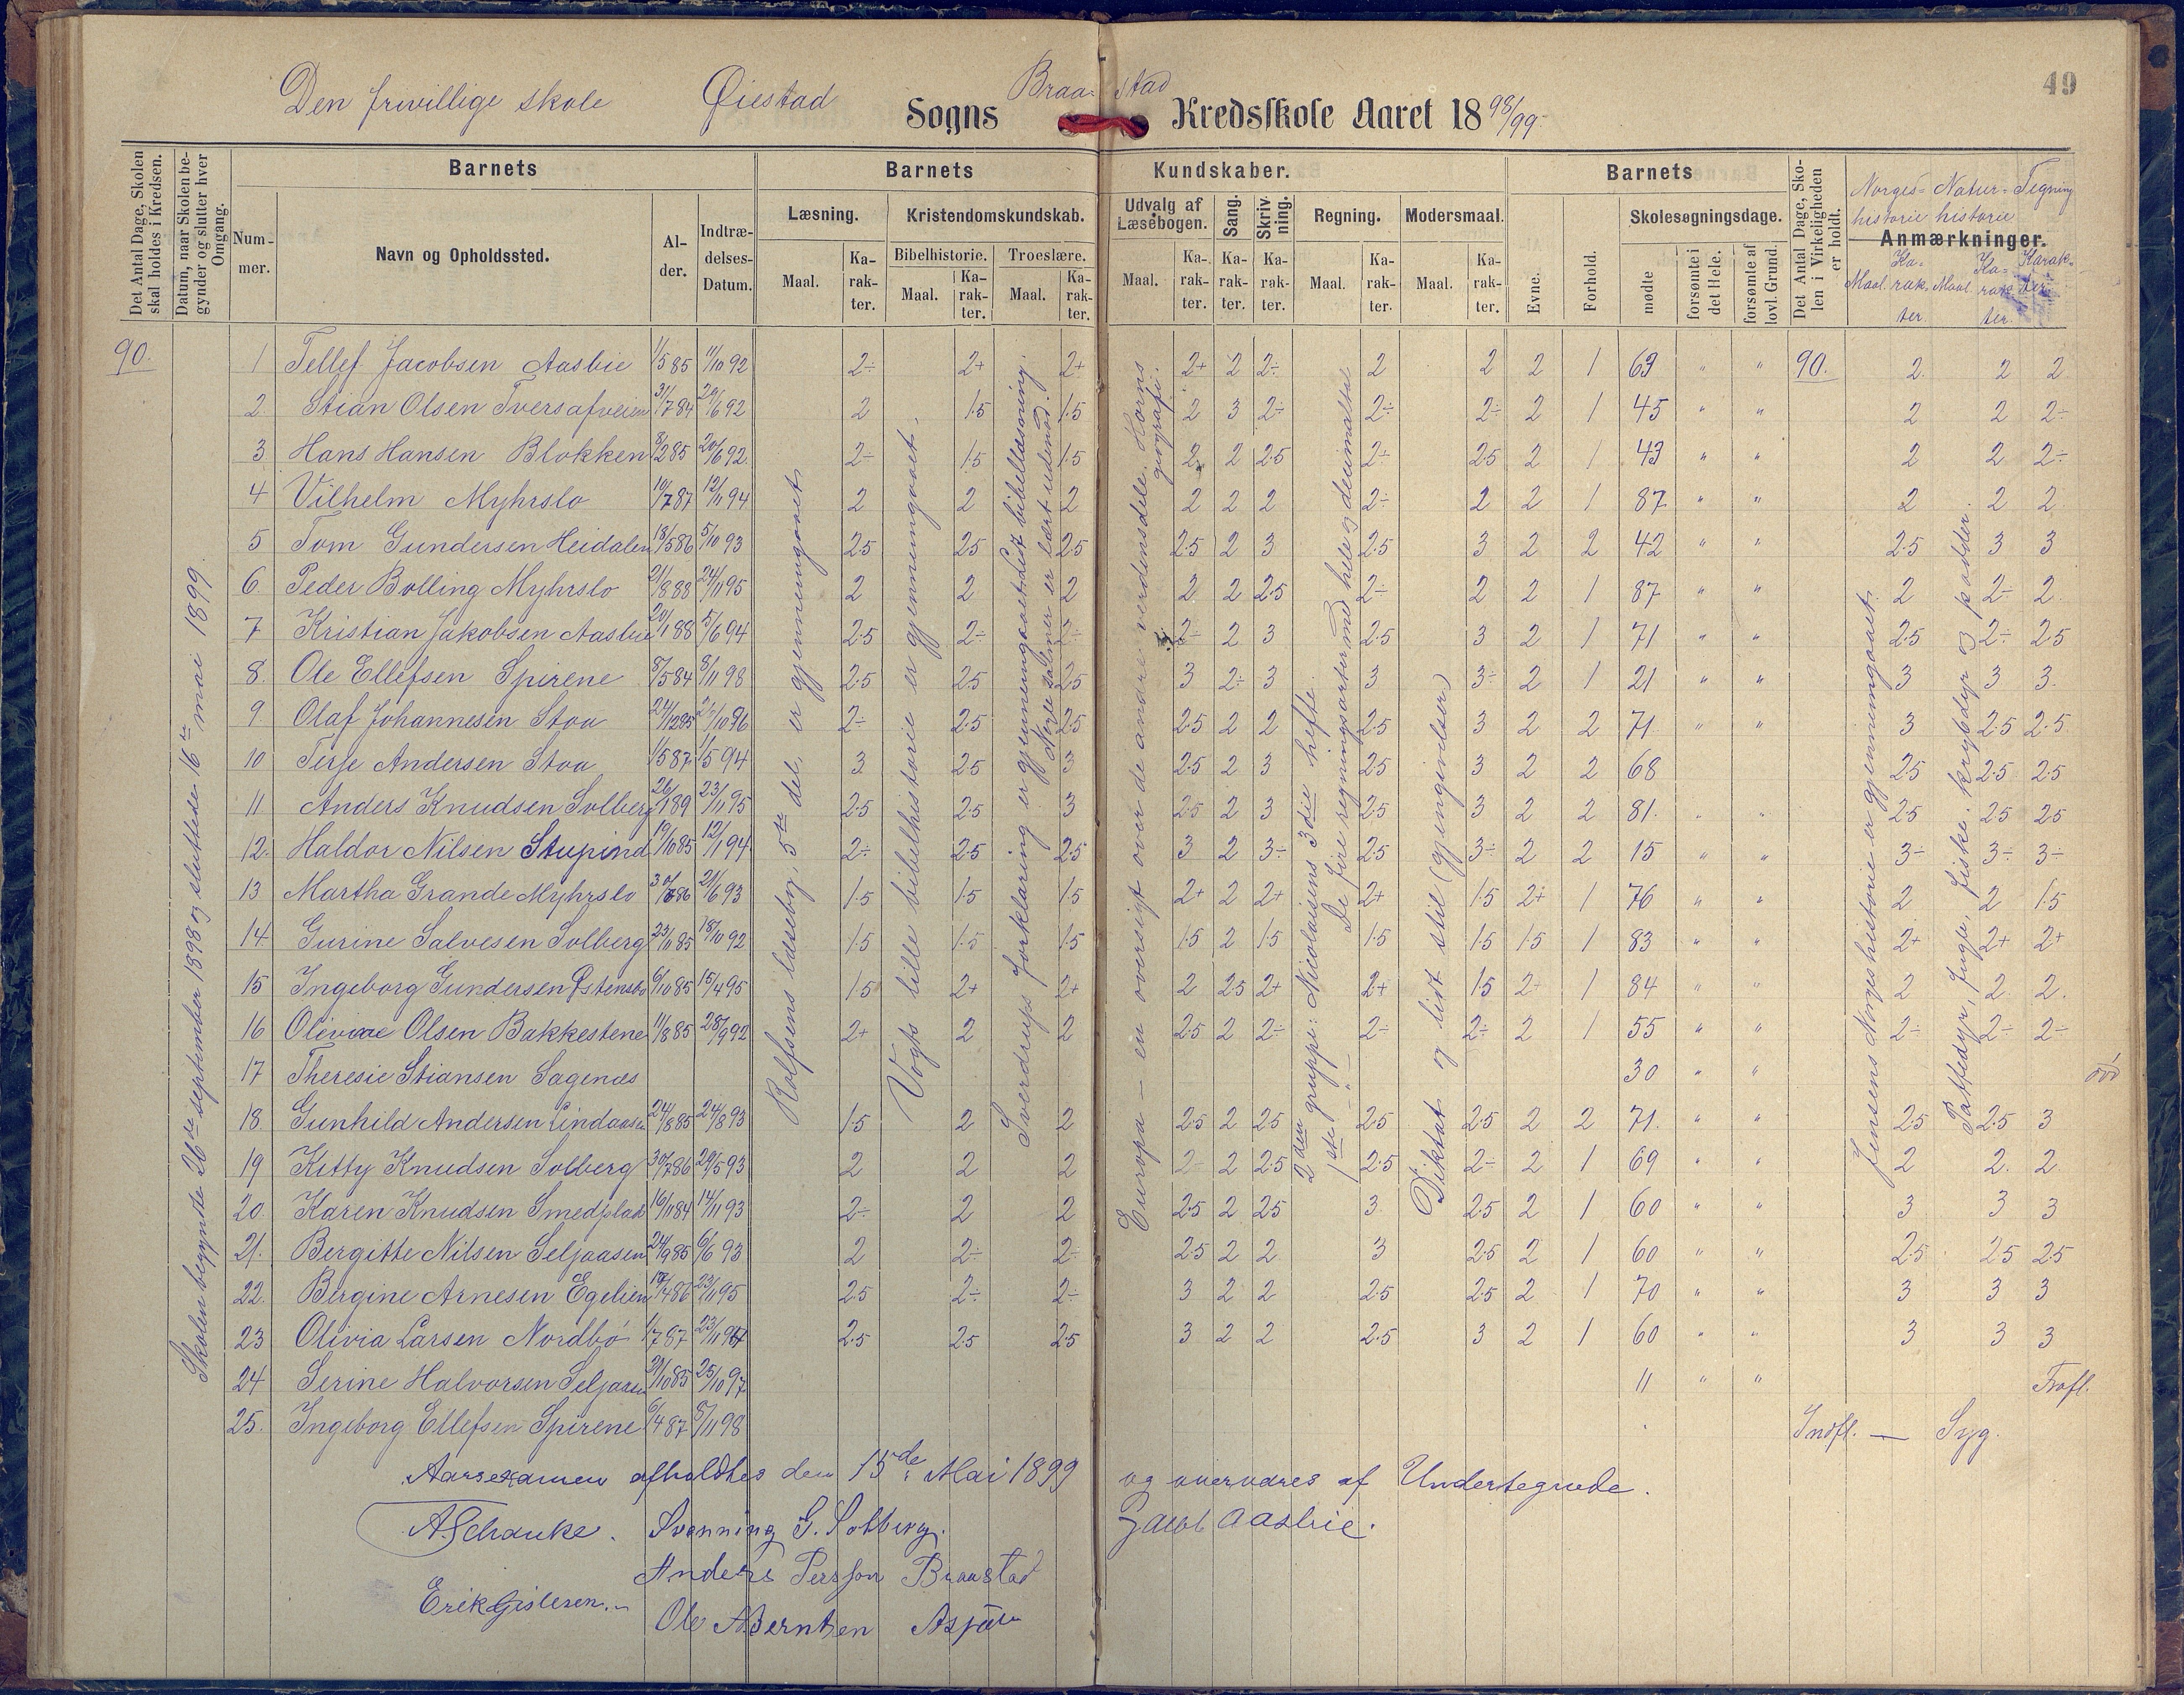 49
Den frivillige skole Øiestad Sogns Braastad Kredsskole Aaret 1898/99.
Det Antal Dage, Skolen skal holdes i Kredsen.
Datum, naar Skolen begynder og slutter hver Omgang.
Barnets
Nummer.
Navn og Opholdssted.
Alder.
Indtrædelses-Datum.
Barnets Kundskaber.
Læsning.
Maal. Karakter.
Kristendomskundskab.
Bibelhistorie. Troeslære.
Maal. Karakter. Maal. Karakter.
Udvalg af Læsebogen.
Maal. Karakter.
Sang. Karakter.
Skrivning. Karakter.
Regning.
Maal. Karakter.
Modersmaal.
Maal. Karakter.
Barnets
Evne. Forhold.
Skolesøgningsdage.
mødte forsømte i det Hele. forsømte af lovl. Grund.
Det Antal Dage, Skolen i Virkeligheden er holdt.
Norges- Natur- Tegning
historie historie
Anmærkninger.
Maal Karakter. Maal Karakter. Karakter
90.
Skolen begyndte 26de september 1898 og sluttede 16de mai 1899.
Rolfsens læsebog, 5te del, er gjennemgaaet
Vogts lille bibelhistorie er gjennemgaaet.
Sverdrups forklaring er gjennemgaaet. Lidt bibellæsning.
Nogle salmer er lært udenad.
Europa – en oversigt over de andre verdensdele. Horns geografi.
2den gruppe: Nicolaisens 3die hefte.
1ste – " – De fire regningsarter med hele og decimaltal
Diktat og lidt stil (gjengivelser)
Jensens Norgeshistorie er gjennemgaaet.
Pattedyr, fugle, fiske, krybdyr og padder.
1 Tellef Jacobsen Aasbie 1/5 85 11/10 92 2÷ 2+ 2+ 2+ 2 2÷ 2 2 2 1 69 " " 90. 2 2 2
2 Stian Olsen Tversafveien 31/7 84 20/6 92 2 1.5 1.5 2 3 2÷ 2÷ 2÷ 2 1 45 " " 2 2 2÷
3 Hans Hansen Blokken 3/2 85 20/6 92 2÷ 1.5 1.5 2 2 2.5 2÷ 2.5 2 1 43 " " 2 2 2÷
4 Vilhelm Myhrslo 19/7 87 12/11 94 2 2 2 2 2 2 2÷ 2 2 1 87 " " 2 2 2
5 Tom Gundersen Heidalen 18/5 86 5/10 93 2.5 2.5 2.5 2.5 2 3 2.5 3 2 2 42 " " 2.5 3 3
6 Peder Bolling Myhrslo 21/8 88 24/11 95 2 2 2 2 2 2.5 2÷ 2 2 1 87 " " 2 2÷ 2
7 Kristian Jakobsen Aasbie 20/1 88 5/6 94 2.5 2÷ 2÷ 2÷ 2 3 2.5 3 2 1 71 " " 2.5 2÷ 2.5
8. Ole Ellefsen Spirene 8/5 84 8/11 98 2.5 2.5 2.5 3 2÷ 3 3 3÷ 2 1 21 " " 3 3 3
9 Olaf Johannesen Stoa 24/12 85 2÷ 2.5 2.5 2.5 2 2 2.5 3 2 2 71 " " 3 2.5 2.5
10 Terje Andersen Stoa 1/5 87 1/5 94 3 2.5 3 2.5 2 3 2.5 3 2 2 68 2.5 2.5 2.5
11 Anders Knudsen Solberg 26/1 89 23/11 95 2.5 2.5 3 2.5 2 3 2.5 3 2 2 81. " " 2.5 2.5 2.5
12. Haldor Nilsen Stupind 19/10 85 12/1 94 2÷ 2.5 2.5 3 2 3÷ 2.5 3÷ 2 2 15 " " 3÷ 3÷ 3÷
13 Martha Grande Myhrslo 21/6 93 1.5 1.5 1.5 2+ 2 2+ 2+ 1.5 2+ 1 76 " " 2 2 1.5
14 Gurine Salvesen Solberg 18/10 92 1.5 1.5 1.5 1.5 2 1.5 1.5 1.5 1.5 1 83 " " 2+ 2+ 2+
15 Ingeborg Gundersen Østensbø 6/10 85 15/4 95 1.5 2+ 2+ 2 2.5 2+ 2+ 1.5 2+ 1 84 " " 2 2 2
16 Olivae Olsen Bakkestene 11/8 85 28/9 92 2+ 2 2 2.5 2 2÷ 2÷ 2÷ 2 1 55 " " 2÷ 2÷ 2÷
17 Theresie Stiansen Sagenæs 30 " "
18. Gunhild Andersen Lindaasen 24/8 85 24/8 93 1.5 2 2 2.5 2 2.5 2.5 2.5 2 2 71. " " 2.5 2.5 3
19 Kitty Knudsen Solberg 30/7 86 29/5 93 2 2 2 2 2 2.5 2.5 2÷ 2 1 69 " " 2 2 2
20 Karen Knudsen Smedplads 16/11 84 14/11 93 2÷ 2 2 2.5 2 2.5 3 2.5 2 1 60 " " 3 3 3
21. Bergitte Nilsen Seljaasen 24/9 85 6/6 93 2 2÷ 2÷ 2.5 2 2 3 2.5 2 1 60 " " 2.5 2.5 2.5
22. Bergine Arnesen Egelien 17/4 86 23/11 95 2.5 2÷ 2÷ 3 2 2 2.5 2.5 2 1 70 " " 3 3 3
23 Olivia Larsen Nordbø 1/7 87 23/11 94 2.5 2.5 2.5 3 2 2 2.5 3 2 1 60 " " 3 3 3
24 Serine Halvorsen Seljaasen 25/10 97 11 " " Frafl.
25. Ingeborg Ellefsen Spirene 6/4 87 8/11 98 Indfl. — Syg.
Aarsexamen afholdtes den 15de Mai 1899 og overværes af Undertegnede.
A Schanke. Svenning G. Solberg. Jacob Aasbie.
Anders Persson Braastad
Erik Gislesen.
Ole A Berntsen